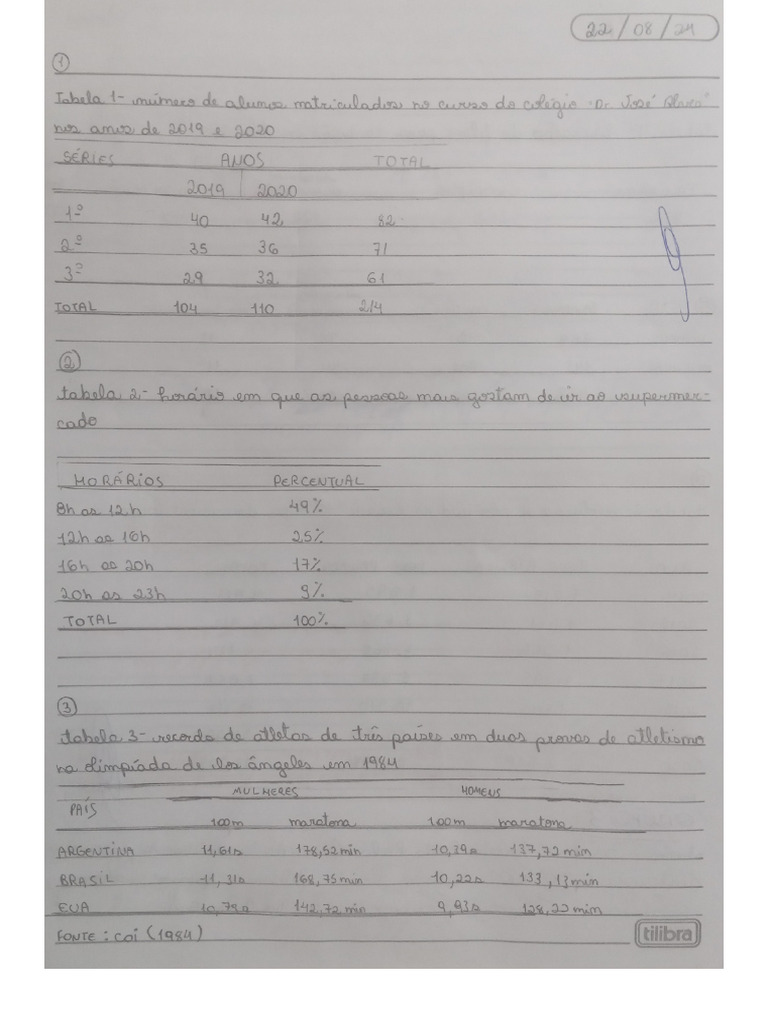 22/08/24
1
Tabela 1- número de alunos matriculados no curso do colégio "Dr José
nos anos de 2019 e 2020
SÉRIES ANOS TOTAL
2019 2020
1º 40 42 82
2º 35 36 71
3º 29 32 61
TOTAL 104 110 214
2
tabela 2- horário em que as pessoas mais gostam de ir ao supermer-
cado
HORÁRIOS PERCENTUAL
8h as 12h 49%
12h as 16h 25%
16h as 20h 17%
20h as 23h 9%
TOTAL 100%
3
tabela 3- recorde de atletas de três países em duas provas de atletismo
na olimpíada de los ângeles em 1984
MULHERES HOMENS
PAÍS
100m maratona 100m maratona
ARGENTINA 11,61s 178,52min 10,39s 137,72min
BRASIL 11,31s 168,75min 10,22s 133,13min
EUA 10,79s 142,72min 9,93s 128,22min
FONTE: coi (1984)
tilibra